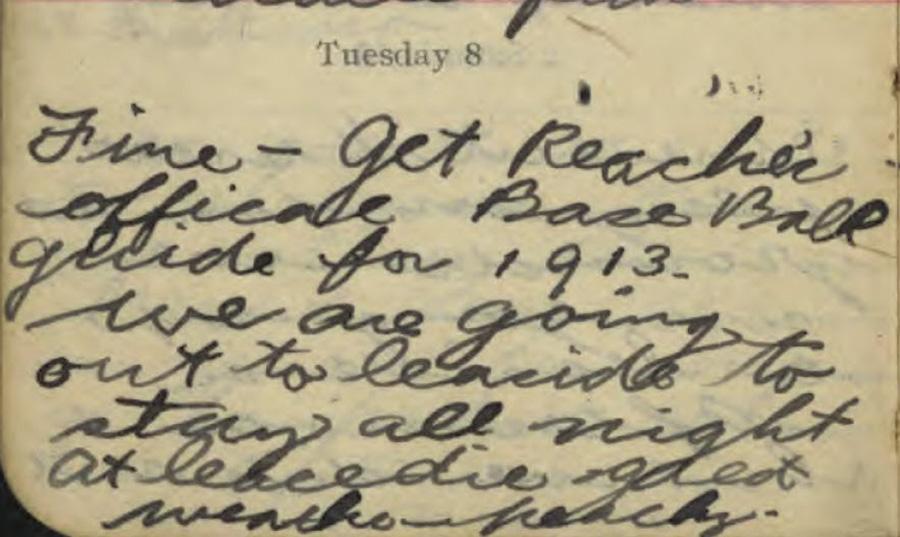 Tuesday 8
Fine - Get Reacher
offical Base Ball
guide for 1913.
we are going
out to leacide to
stay all night
at leacedie - great
weather - peachy.